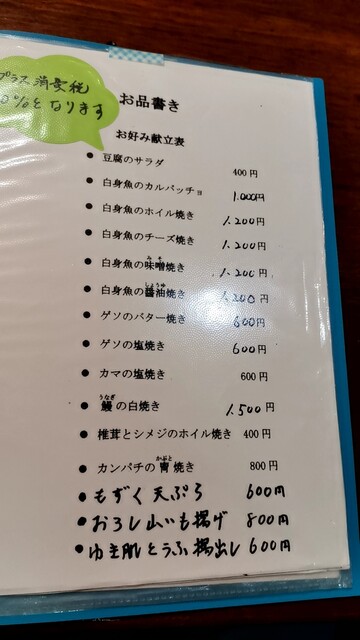 プラス消費税
0%となります
お品書き
お好み献立表
● 豆腐のサラダ 400円
● 白身魚のカルパッチョ 1.000円
● 白身魚のホイル焼き 1.200円
● 白身魚のチーズ焼き 1.200円
● 白身魚の味噌焼き 1.200円
● 白身魚の醤油焼き 1.200円
● ゲソのバター焼き 600円
● ゲソの塩焼き 600円
● カマの塩焼き 600円
● 鰻の白焼き 1.500円
● 椎茸とシメジのホイル焼き 400円
● カンパチの冑焼き 800円
● もずく天ぷら 600円
● おろし山いも揚げ 800円
● ゆき肌とうふ揚出し 600円